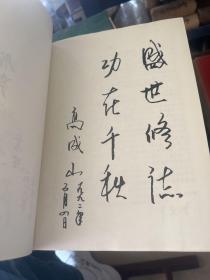 盛世修志
功在千秋
高成山
一九九二年
五月四日